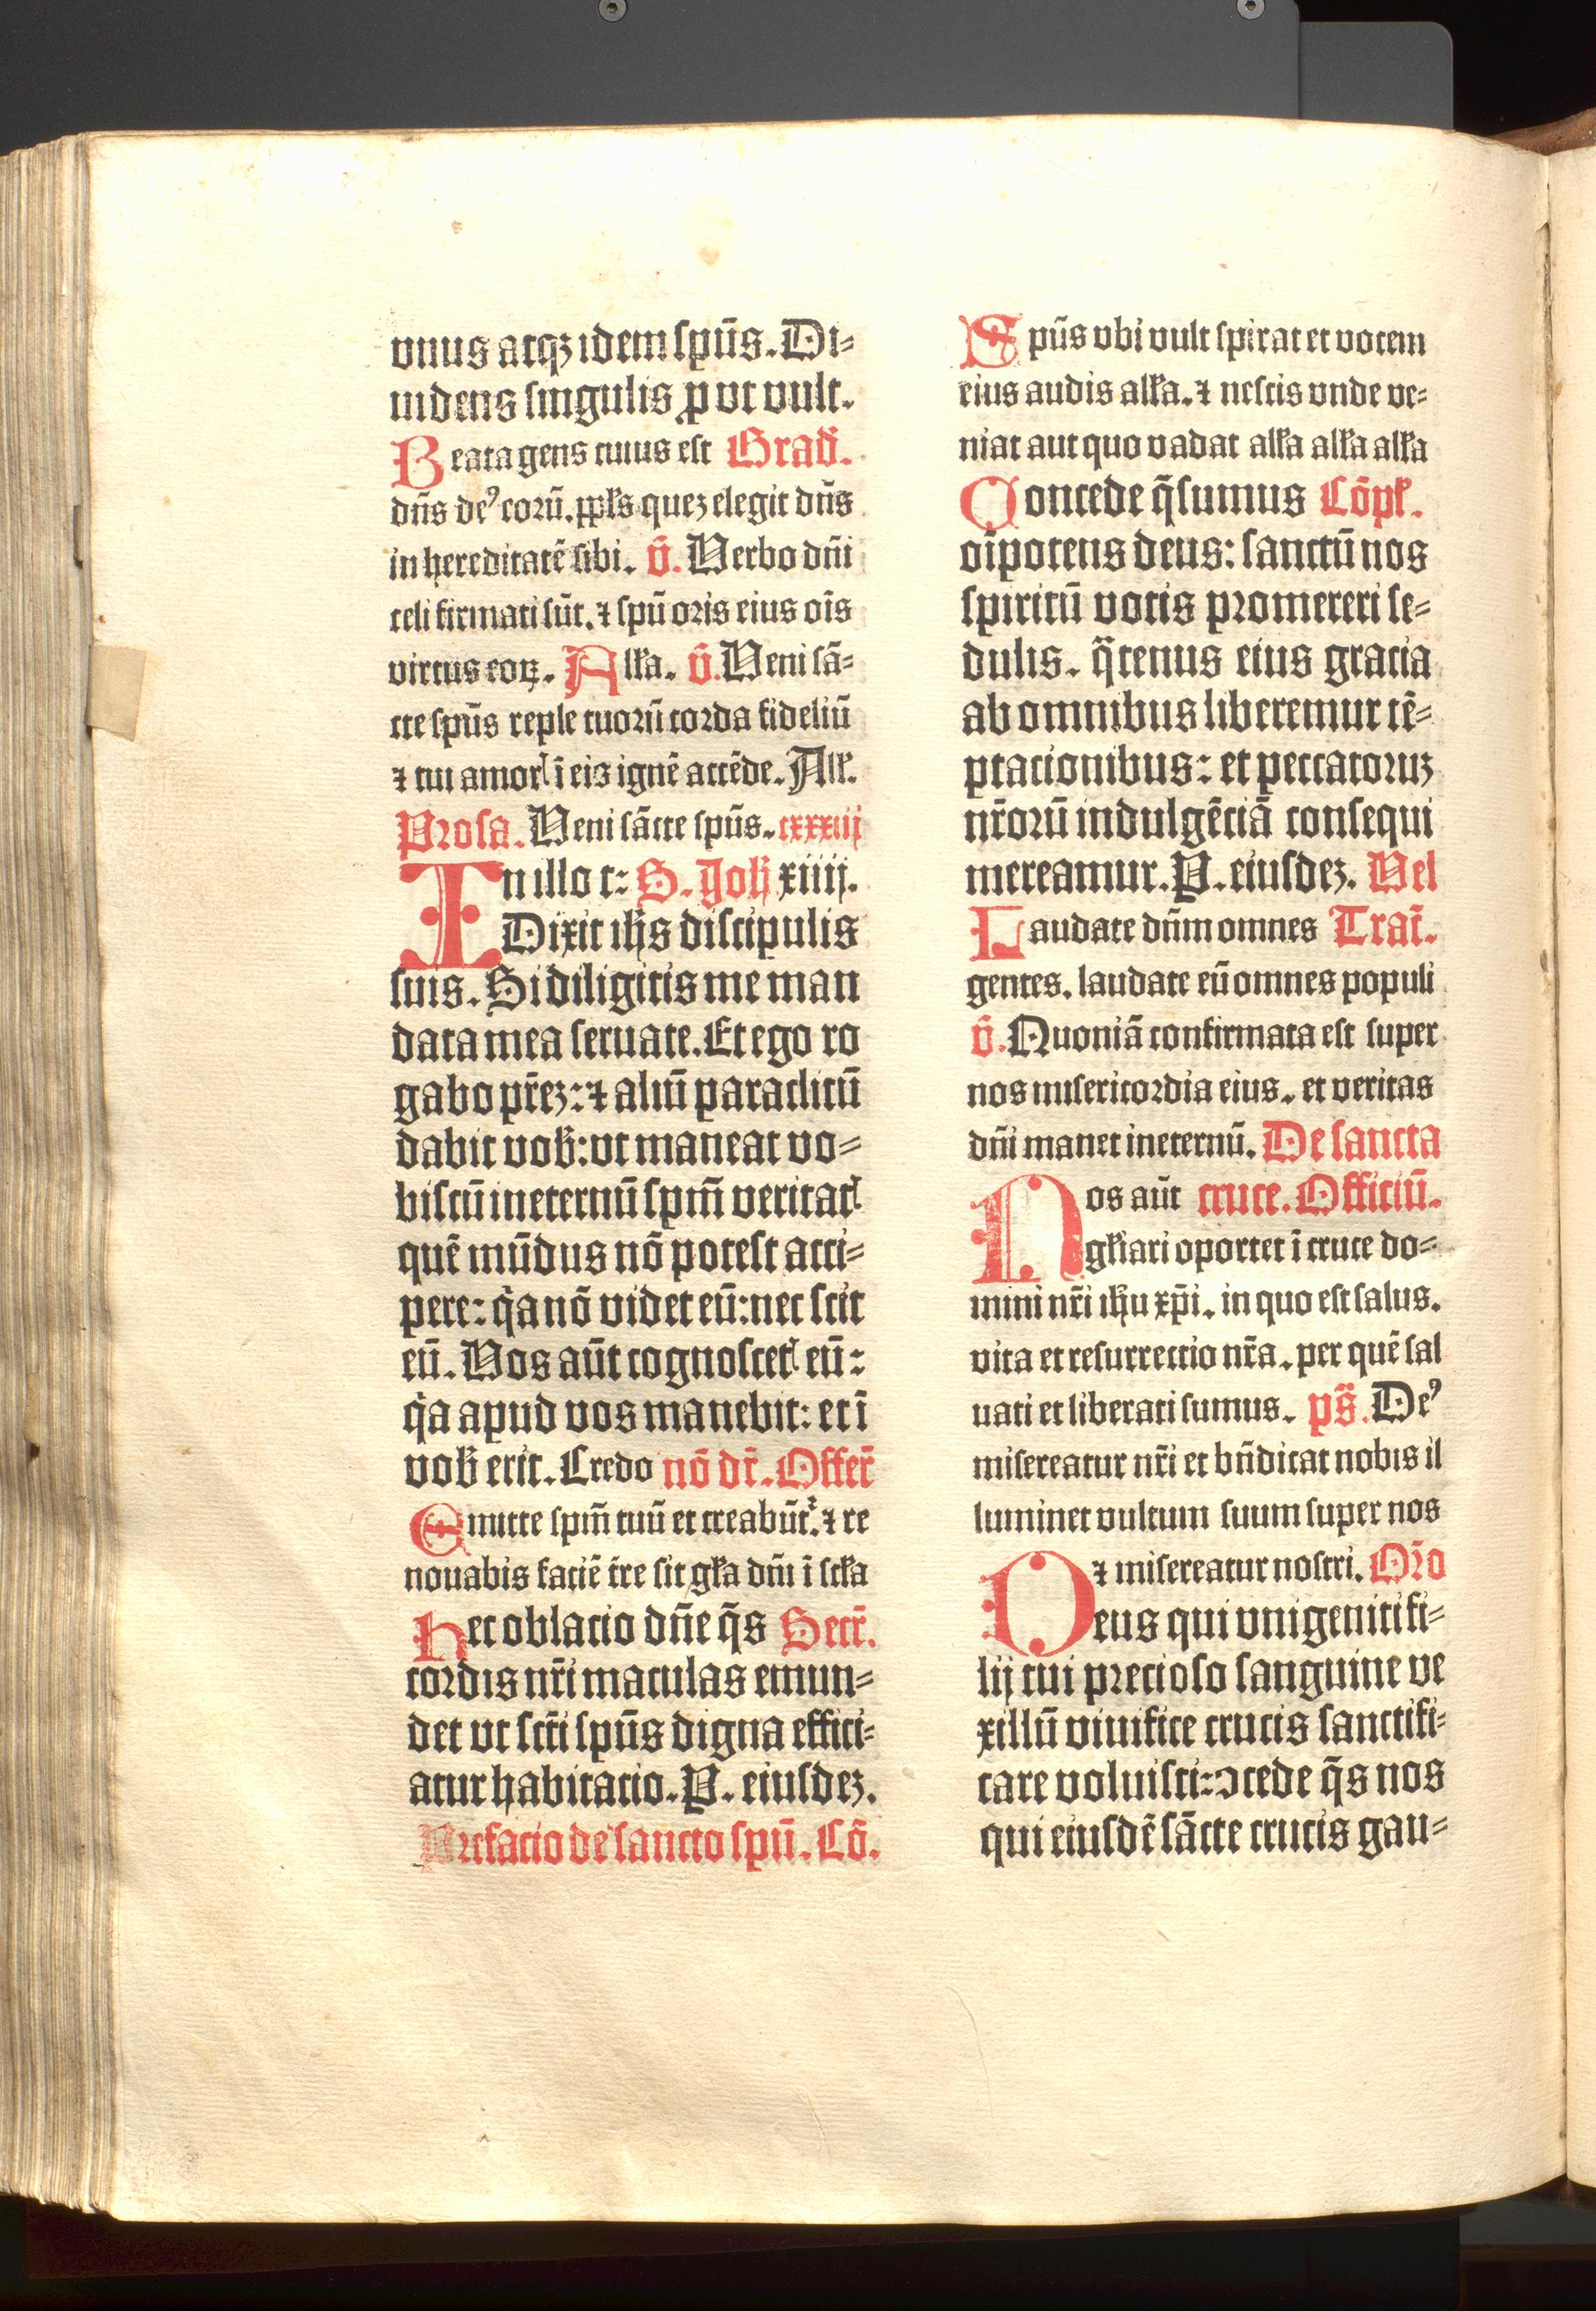 vnus atqꝫ idem ſpūs. Di⸗
uidens ſingulis ꝓvt vult.
Beata gens cuius eſt Grad̄.
dn̄s deꝰ eorū. ppl̄s quez elegit dn̄s
in hereditatē ſibi. v̄. Verbo dn̄i
celi firmati ſūt. ⁊ ſpū oris eius oīs
virtus eoꝝ. Alla. v̄. Veni ſā⸗
cte ſpūs reple tuorū corda fideliū
⁊ tui amorꝭ ī eis ignē accēde. All̄.
Proſa. Veni ſācte ſpūs. cxxxiij
In illo t: S. Joh̄ xiiij.
Dixit ih̄s diſcipulis
ſuis. Si diligitis me man
data mea ſeruate. Et ego ro
gabo pr̄ez: ⁊ aliū paraclitū
dabit vob̄: vt maneat vo⸗
biſcū ineternū ſpm̄ veritatꝭ
quē mūdus nō poteſt acci⸗
pere: q̄a nō videt eū: nec ſcit
eū. Vos aūt cognoſcetꝭ eū:
q̄a apud vos manebit: et ī
vob̄ erit. Credo nō dr̄. Offer̄
Emitte ſpm̄ tuū et creabūt᷑. ⁊ re
nouabis faciē tr̄e ſit gl̄a dn̄i ī ſcl̄a
Hec oblacio dn̄e q̄s Secr̄.
cordis nr̄i maculas emun⸗
det vt ſcti̅ ſpūs digna effici⸗
atur habitatio. P. eiuſdeꝫ.
Prefacio de ſancto ſpū. Cō.
Spūs vbi vult ſpirat et vocem
eius audis alla. ⁊ neſcis vnde ve⸗
niat aut quo vadat alla alla alla
Concede q̄ſumus Cōpl̄.
oīpotens deus: ſanctū nos
ſpiritū votis promereri ſe⸗
dulis. q̄tenus eius gracia
ab omnibus liberemur tē⸗
ptacionibus: et peccatoruꝫ
nr̄orū indulgēciā conſequi
mereamur. P. eiuſdeꝫ. Vel
Laudate dn̄m omnes Trac̄.
gentes. laudate eū omnes populi
v̄. Quoniā confirmata eſt ſuper
nos miſericordia eius. et veritas
dn̄i manet ineternū. De ſancta
Nos aūt cruce. Officiū.
gl̄iari oportet ī cruce do⸗
mini nr̄i ih̄u xp̄i. in quo eſt ſalus.
vita et reſurrectio nr̄a. per quē ſal
uati et liberati ſumus. ps̄. Deꝰ
miſereatur nr̄i et bn̄dicat nobis il
luminet vultum ſuum ſuper nos
⁊ miſereatur noſtri. Oro̅
Deus qui vnigeniti fi⸗
lij tui precioſo ſanguine ve
xillū viuifice crucis ſanctifi⸗
care voluiſti: ↄcede q̄s nos
qui eiuſdē ſācte crucis gau⸗